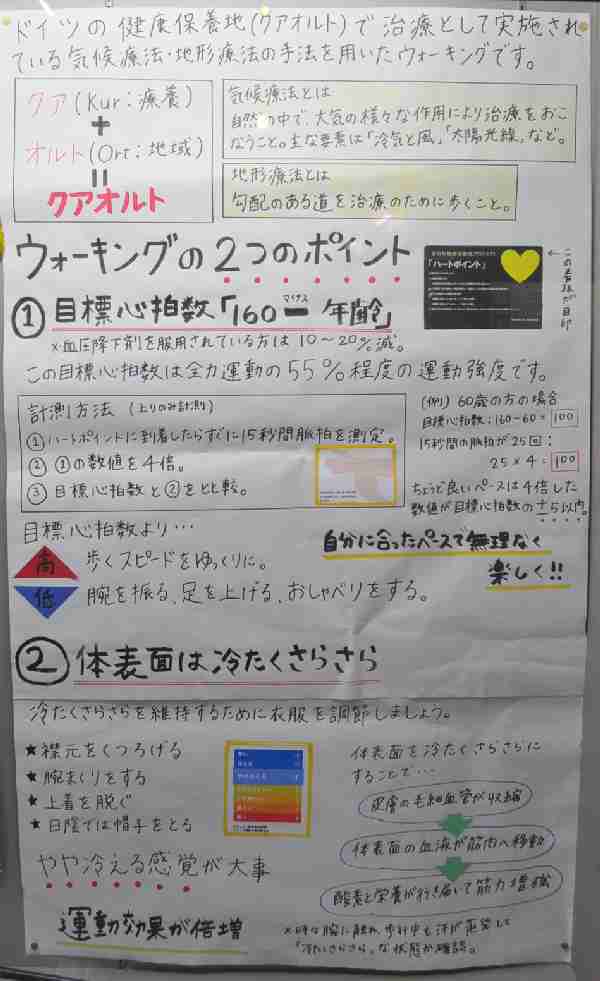 ドイツの健康保養地(クアオルト)で治療として実施され
ている気候療法・地形療法の手法を用いたウォーキングです。
クア(Kur:療養)
+
オルト(Ort:地域)
=
クアオルト
気候療法とは
自然の中で、大気の様々な作用により治療をおこ
なうこと。主な要素は「冷気と風」「太陽光線」など。
地形療法とは
勾配のある道を治療のために歩くこと。
ウォーキングの2つのポイント
「ハートポイント」
←この看板が目印
① 目標心拍数「160 ー 年齢」
マイナス
×血圧降下剤を服用されている方は10~20%減。
この目標心拍数は全力運動の55%程度の運動強度です。
計測方法 (上りのみ計測)
①ハートポイントに到着したらすぐに15秒間脈拍を測定。
② ①の数値を4倍。
③ 目標心拍数と②を比較。
(例) 60歳の方の場合
目標心拍数:160-60=100
15秒間の脈拍が25回:
25×4=100
ちょうど良いペースは4倍した
数値が目標心拍数の±5以内。
目標心拍数より…
高 歩くスピードをゆっくりに。
低 腕を振る、足を上げる、おしゃべりをする。
自分に合ったペースで無理なく
楽しく!!
② 体表面は冷たくさらさら
冷たくさらさらを維持するために衣服を調節しましょう。
★襟元をくつろげる
★腕まくりをする
★上着を脱ぐ
★日陰では帽子をとる
やや冷える感覚が大事
運動効果が倍増
体表面を冷たくさらさらに
することで…
皮膚の毛細血管が収縮
体表面の血液が筋肉へ移動
酸素と栄養が行き届いて筋力増強
×時々腕に触れ、歩行中も汗が蒸発して
「冷たくさらさら」な状態か確認。